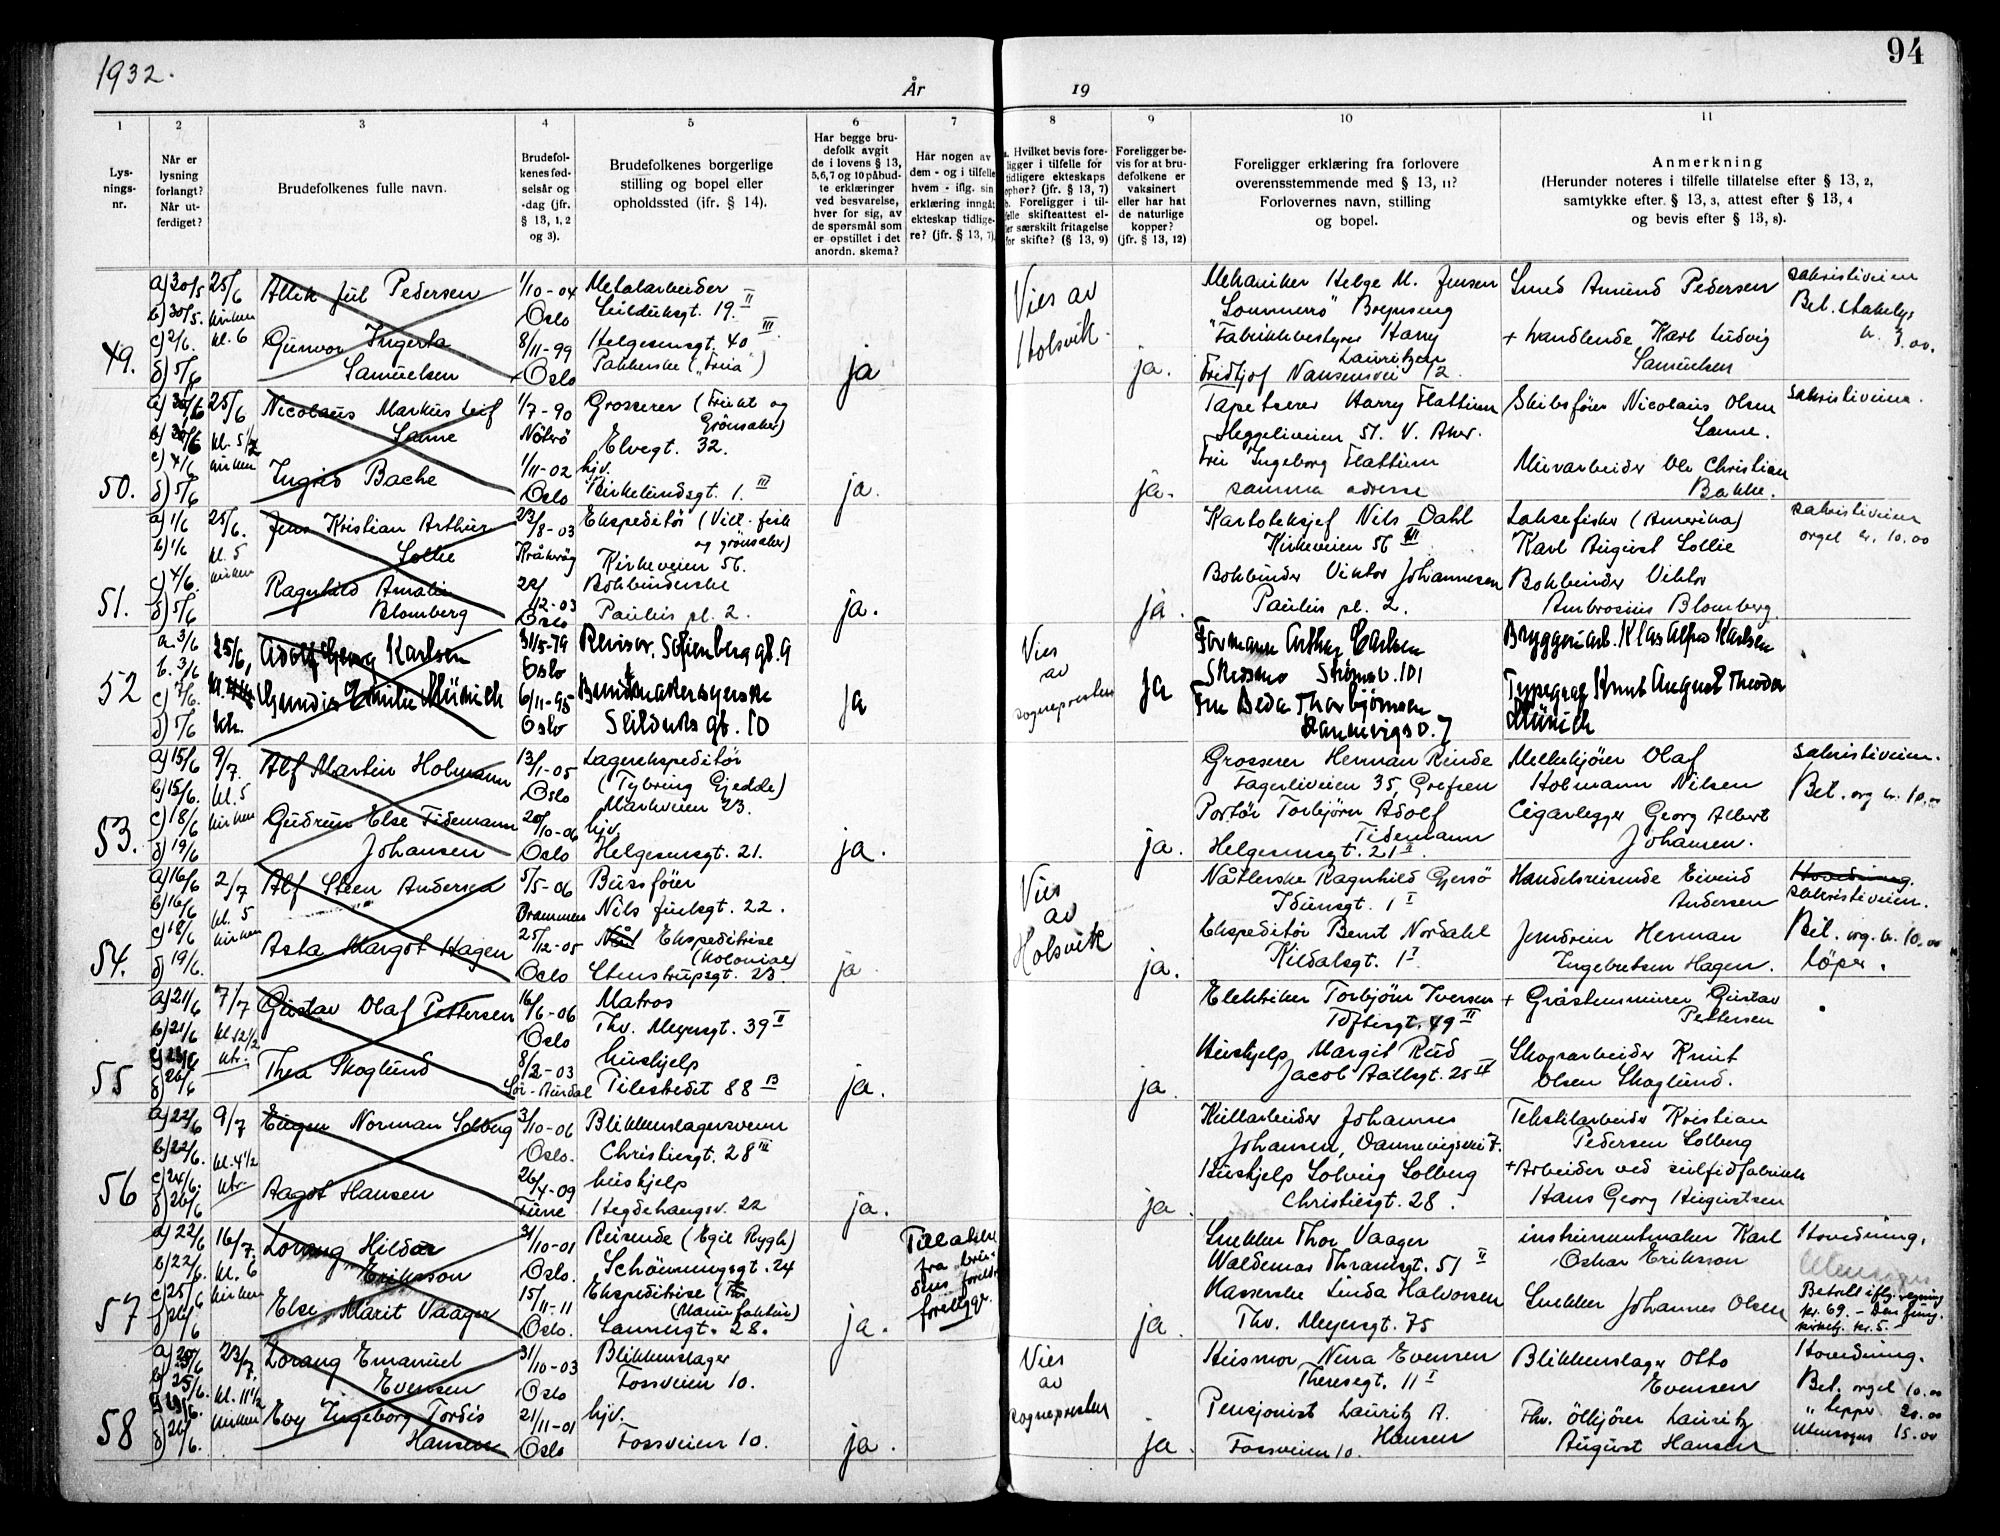 1932.
År
19
94
1
2
3
4
5
6
7
8
9
10
11
Lys-
nings-
nr.
Når er
lysning
forlangt?
Når ut-
ferdiget?
Brudefolkenes fulle navn.
Brudefol-
kenes fød-
selsår og
-dag (jfr.
§ 13, 1, 2
og 3).
Brudefolkenes borgerlige
stilling og bopel eller
opholdssted (ifr. § 14).
Har begge bru-
defolk avgit
de i lovens § 13,
5,6,7 og 10 påbud-
te erklæringer
ved besvarelse,
hver for sig, av
de spørsmål som
er opstillet i det
anordn. skema?
Har nogen av
dem - og i tilfelle
hvem - iflg. sin
erklæring inngåt
ekteskap tidlige-
re? (jfr. § 13, 7).
a. Hvilket bevis fore-
ligger i tilfelle for
tidligere ekteskaps
ophør? (jfr. § 13, 7)
b. Foreligger i til-
felle skifteattest el-
ler særskilt fritagelse
for skifte? (§ 13, 9)
Foreligger be-
vis for at bru-
defolkene er
vaksinert
eller har hat
de naturlige
kopper?
(jfr. § 13, 12)
Foreligger erklæring fra forlovere
overensstemmende med § 13, 11?
Forlovernes navn, stilling
og bopel.
Anmerkning
(Herunder noteres i tilfelle tillatelse efter § 13, 2,
samtykke efter § 13, 3, attest efter § 13, 4
og bevis efter § 13, 8).
49.
a) 30/5
b) 30/5.
c) 2/6.
d) 5/6
25/6
kirken
kl. 6
Pedersen
Gunvor Ingerta
Samuelsen
1/10-04
Oslo
8/11-99
Oslo
Metalarbeider
Seilduksgt. 19. II
Helgesensgt. 40 III
Pakkerske ("Freia")
ja
Vies av
Holsvik.
ja.
Mekaniker Helge M. Jensen
Brynseng
Fabrikkbestyrer Harry
Lauritzen
Fridtjof Nansensvei 12.
Smed Amund Pedersen
+ handlende Karl Ludvig
Samuelsen
sakristiveien
Bet.
kr. 3.00.
50.
c) 4/6
d) 5/6
25/6
kl. 5 1/2
kirken
Nicolaus Markus Leif
Sanne
Ingrid Bache
1/7-90
Nøtterø
1/11-02
Oslo
Grosserer (Frukt og
Grønsaker)
Elvegt. 32.
hjv.
Kirkelundsgt. 1. III
ja.
ja.
Tapetserer Harry Flattum
Heggeliveien 51. V. Aker.
Frú Ingeborg Flattum
samma adresse
Skibsfører Nicolaus Olsen
Sanne.
Murarbeider Ole Christian
Bakke.
sakristiveien.
51.
a) 1/6
b) 1/6
c) 4/6.
d) 5/6
25/6.
kl. 5
kirken
Jens Kristian Arthur
Sollie
Ragnhild Amalie
Blomberg
23/8-03
Kråkerøy
22/12-03
Oslo
Ekspeditør (Vilt- fisk
og grønsaker)
Kirkeveien 56.
Bokbinderske
Paulus pl. 2.
ja.
ja.
Kartoteksjef Nils Dahl
Kirkeveien 56 III
Bokbinder Viktor Johannesen
Paulus pl. 2.
Laksefisker (Amerika)
Karl August Sollie
Bokbinder Viktor
Ambrosius Blomberg.
sakristiveien
orgel kr. 10.00
52
a. 3/6
b. 3/6
c) 7/6.
d) 5/6
25/6,
kk.
Adolf Georg Karlsen
Gundis Emilie Münich
31/5-79
Oslo
6/11-95
Oslo
Revisor, Sofienberg gt. 9
Buntmakersyerske
Seilduks gt. 10
ja
Vies
av
sognepresten
ja
Formann Arthur Carlsen
Skedsmo Strømsv. 101
Fru Beda Thorbjørnsen
Dannevigsv. 7
Bryggeriarb. Klas Alfred Karlsen
Typograf Knut August Theodor
Münich
53.
a) 15/6
b) 15/6.
c) 18/6
d) 19/6
9/7.
kl. 5
kirken
Alf Martin Holmann
Gudrun Else Tidemann
Johansen
13/1-05
Oslo
20/10-06
Oslo
Lagerekspeditør
(Tybring Gjedde)
Markveien 23.
hjv.
Helgesensgt. 21.
ja.
ja.
Grosserer Herman Rinde
Fagerliveien 35, Grefsen
Portør Torbjørn Adolf
Tidemann
Helgesensgt. 21 II
Melkekjører Olaf
Holmann Nilsen
Cigarlegger Georg Albert
Johansen.
sakristiveien.
Bet. org kr. 10.00
54.
a) 16/6
b) 16/6
c) 18/6
d) 19/6.
2/7
kl. 5
kirken
Alf Steen Andersen
Asta Margot Hagen
5/5-06
Drammen
25/12-05
Oslo
Bussfører
Nils Juelsgt. 22.
Ekspeditrise
(kolonial)
Stenstrupsgt. 23.
ja.
Vies
av
Holsvik
ja.
Nåtlerske Ragnhild Gjersø
Idunsgt. 1 I
Ekspeditør Bernt Nordahl
Kildalsgt. 1 I
Handelsreisende Eivind
Andersen
Jerndreier Herman
Ingebretsen Hagen.
Hovedinng.
sakristiveien.
Bet. org. kr. 10.00
løper.
55
a) 21/6
b) 21/6
d) 26/6
7/7
kl. 12 1/2
Gustav Olaf Pettersen
Thea Skoglund
16/6-06
Oslo
8/2-03
Sør-Aurdal
Matros
Thv. Meyersgt. 39 II
hushjelp
Pilestredet 88 B
ja.
ja.
Elektriker Torbjørn Iversen
Toftesgt. 49 II
Hushjelp Margit Rud
Jacob Aallsgt. 25 IV
+ Gråstensmurer Gustav
Pettersen
Skogsarbeider Knut
Olsen Skoglund.
56
a) 22/6
b) 22/6.
c) 24/6.
d) 26/6
9/7
kl. 4 1/2
Eugen Norman Solberg
Aagot Hansen
3/10-06
Oslo.
26/4-09
Tune
Blikkenslagersvenn
Christiesgt. 28 III
hushjelp
Hegdehaugsv. 22
ja.
ja.
Kullarbeider Johannes
Johansen, Dannevigsvei 7.
Hushjelp Solveig Solberg
Christiesgt. 28.
Tekstilarbeider Kristian
Pedersen Solberg
+ Arbeider ved sulfidfabrikk
Hans Georg Augustsen
57
a) 22/6
b) 22/6.
c) 25/6
d) 26/6
16/7.
kl. 6
kirken
Lorang Hildar
Eriksson
Else Marit Vaager
31/10-01
Oslo.
15/11-11
Oslo.
Reisende (Egil Rygh)
Schønningsgt. 24
Ekspeditrise
(Manufaktur)
Sannergt. 28.
ja.
Tillatelse
fra bru-
dens foreldre
foreligger.
ja.
Snekker Thor Vaager
Waldemar Thranesgt. 51 II
Kasserske Linda Halvorsen
Thv. Meyersgt. 75
instrumentmaker Karl
Oskar Eriksson
Snekker Johannes Olsen
Hovedinng.
Betalt iflg. regning
kr. 69.-
kr. 5.-
58
b) 25/6.
d) 26/6.
23/7.
kl. 11 1/2
kirken
Lorang Emanuel
Evensen
Evy Ingeborg Tordis
Hansen
31/10-03
Oslo
21/11-01
Oslo
Blikkenslager
Fossveien 10.
hjv.
Fossveien 10.
ja.
Vies
av
sognepresten
ja.
Husmor Nina Evensen
Theresegt. 11 I
Pensjonist Lauritz A.
Hansen
Fossveien 10.
Blikkenslager Otto
Evensen
Fhv. ølkjører Lauritz
August Hansen
Hovedinng.
Bet. orgel 10.00
" tepper 20.00
15.00